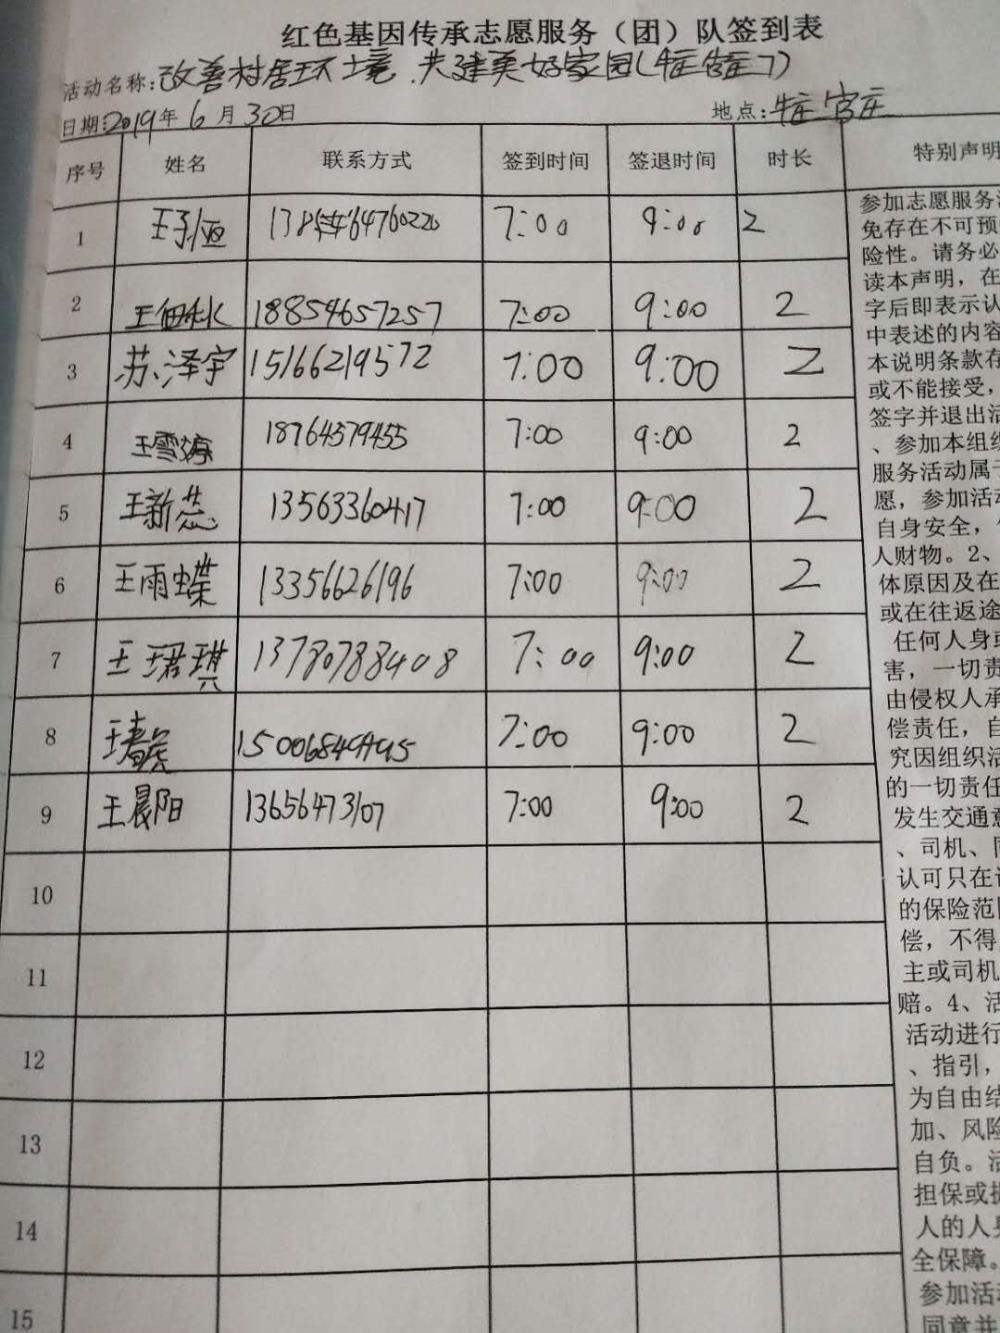 红色基因传承志愿服务（团）队签到表
活动名称:改善村居环境 共建美好家园(牛庄官庄7)
日期:2019年6月30日 地点:牛庄官庄
序号 姓名 联系方式 签到时间 签退时间 时长 特别声明
1 王子恒 64760220 7:00 9:00 2
2 18854657257 7:00 9:00 2
3 苏泽宇 15166219572 7:00 9:00 2
4 王雪婷 18764579455 7:00 9:00 2
5 王新蕊 13563360417 7:00 9:00 2
6 王雨蝶 13356626196 7:00 9:00 2
7 王珺琪 13780788408 7:00 9:00 2
8 7:00 9:00 2
9 王晨阳 13656473107 7:00 9:00 2
10
11
12
13
14
15
参加志愿服务活
免存在不可预
险性。请务必
读本声明，在
字后即表示认
中表述的内容
本说明条款存
或不能接受，
签字并退出活
、参加本组织
服务活动属于
愿，参加活动
自身安全，
人财物。2、
体原因及在
或在往返途
任何人身或
害，一切责
由侵权人承
偿责任，自
究因组织活
的一切责任
发生交通意
、司机、同
认可只在
的保险范围
偿，不得
主或司机
赔。4、活
活动进行
、指引，
为自由结
加、风险
自负。活
担保或担
人的人身
全保障。
参加活动
同意并